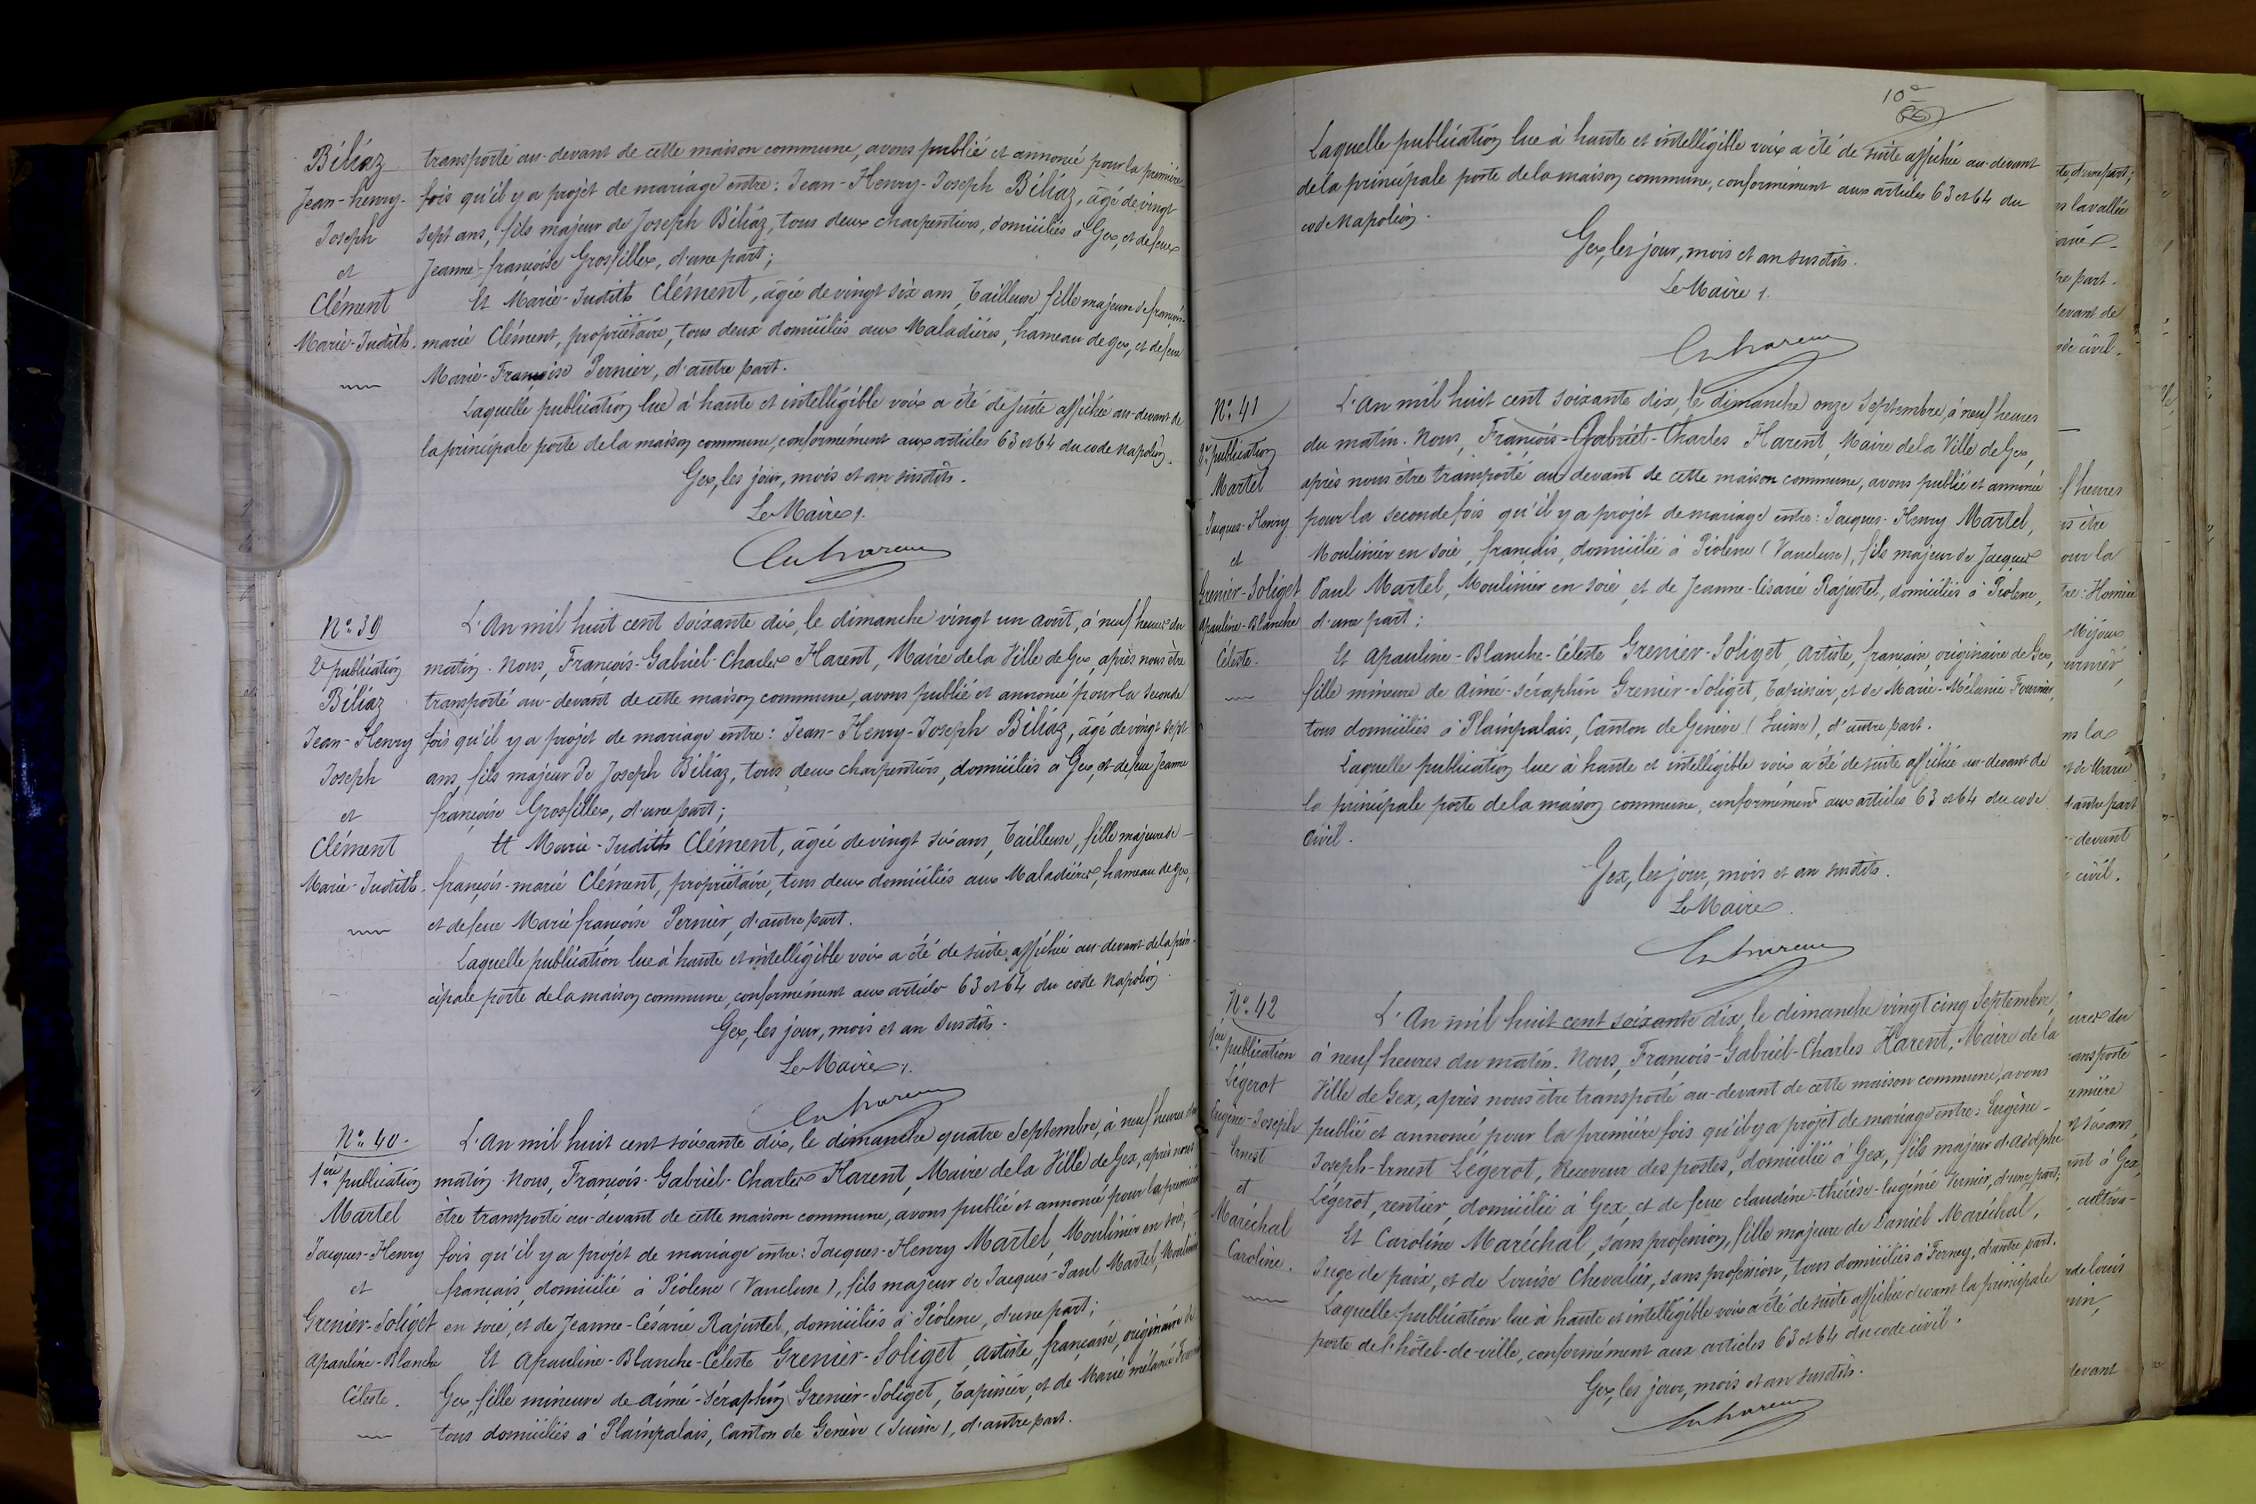 Béliaz
Jean-henry-
Joseph
et
Clément
Marie-Judith.
transporté au-devant de cette maison commune, avons publié et annoncé pour la première
fois qu'il y a projet de mariage entre: Jean-Henry-Joseph Béliaz, âgé de vingt
sept ans, fils majeur de Joseph Béliaz, tous deux charpentiers, domiciliés à Gex, et de feue
Jeanne-françoise Grosfillex, d'une part;
Et Marie-Judith Clément, âgée de vingt six ans, Tailleuse fille majeure de françois-
marie Clément, propriétaire, tous deux domiciliés aux Maladières, hameau de gex, et de feue
Marie-Françoise Pernier, d'autre part.
Laquelle publication lue à haute et intelligible voix a été de suite affichée au-devant de
la principale porte de la maison commune, conformément aux articles 63 et 64 du code Napoléon.
Gex, les jour, mois et an susdits.
Le Maire
No. 39
2e publication
Béliaz
Jean-Henry
Joseph
et
Clément
Marie-Judith.
L'An mil huit cent soixante dix, le dimanche vingt un août, à neuf heures du
matin. Nous, François-Gabriel-Charles Harent, Maire de la Ville de Gex, après nous être
transporté au-devant de cette maison commune, avons publié et annoncé pour la seconde
fois qu'il y a projet de mariage entre: Jean-Henry-Joseph Béliaz, âgé de vingt sept
ans, fils majeur de Joseph Béliaz, tous deux charpentiers, domiciliés à Gex, et de feue Jeanne
françoise Grosfillex, d'une part;
Et Marie-Judith Clément, âgée de vingt six ans, Tailleuse, fille majeure de
françois-marie Clément, propriétaire, tous deux domiciliés aux Maladières, hameau de gex,
et de feue Marie françoise Pernier, d'autre part.
Laquelle publication lue à haute et intelligible voix a été de suite affichée au-devant de la prin-
cipale porte de la maison commune, conformément aux articles 63 et 64 du code Napoléon.
Gex, les jour, mois et an susdits.
Le Maire
No. 40.
1ère publication
Martel
Jacques-Henry
et
Grenier-Soliget
Apauline-Blanche
Céleste.
L'An mil huit cent soixante dix, le dimanche quatre Septembre, à neuf heures du
matin. Nous, François-Gabriel-Charles Harent, Maire de la Ville de Gex, après nous
être transporté au-devant de cette maison commune, avons publié et annoncé pour la première
fois qu'il y a projet de mariage entre: Jacques-Henry Martel, Moulinier en soie,
français, domicilié à Piolenc (Vaucluse), fils majeur de Jacques-Paul Martel, Moulinier
en soie, et de Jeanne-Césarie Rajustel, domiciliés à Piolenc, d'une part;
Et Apauline-Blanche-Céleste Grenier-Soliget, Artiste, française, originaire de
Gex, fille mineure de Aimé-Séraphin Grenier-Soliget, Tapissier, et de Marie mélanie Fournier
tous domiciliés à Plainpalais, Canton de Genève (Suisse), d'autre part.
10
Laquelle publication lue à haute et intelligible voix a été de suite affichée au-devant
de la principale porte de la maison commune, conformément aux articles 63 et 64 du
code Napoléon.
Gex, les jour, mois et an susdits.
Le Maire
No. 41
2e publication
Martel
Jacques-Henry
et
Grenier-Soliget
Apauline-Blanche
Céleste.
L'An mil huit cent soixante dix, le dimanche onze Septembre, à neuf heures
du matin. Nous, François-Gabriel-Charles Harent, Maire de la Ville de Gex,
après nous être transporté au devant de cette maison commune, avons publié et annoncé
pour la seconde fois qu'il y a projet de mariage entre: Jacques-Henry Martel,
Moulinier en soie, français, domicilié à Piolenc (Vaucluse), fils majeur de Jacques
Paul Martel, Moulinier en soie, et de Jeanne-Césarie Rajustel, domiciliés à Piolenc,
d'une part;
Et Apauline-Blanche-Céleste Grenier-Soliget, Artiste, française, originaire de Gex,
fille mineure de Aimé-Séraphin Grenier-Soliget, Tapissier, et de Marie-Mélanie Fournier,
tous domiciliés à Plainpalais, Canton de Genève (Suisse), d'autre part.
Laquelle publication lue à haute et intelligible voix a été de suite affichée au-devant de
la principale porte de la maison commune, conformément aux articles 63 et 64 du code
civil.
Gex, les jour, mois et an susdits.
Le Maire
No. 42
1ère publication
Légerot
Eugène-Joseph
Ernest
et
Maréchal
Caroline.
L'An mil huit cent soixante dix, le dimanche vingt cinq Septembre,
à neuf heures du matin. Nous, François-Gabriel-Charles Harent, Maire de la
Ville de Gex, après nous être transporté au-devant de cette maison commune, avons
publié et annoncé pour la première fois qu'il y a projet de mariage entre: Eugène-
Joseph-Ernest Légerot, Receveur des postes, domicilié à Gex, fils majeur d'Adolphe
Légerot, rentier, domicilié à Gex, et de feue claudine-thérèse-Eugénie Vernier, d'une part;
Et Caroline Maréchal, sans profession, fille majeure de Daniel Maréchal,
Juge de paix, et de Louise Chevalier, sans profession, tous domiciliés à Ferney, d'autre part.
Laquelle publication lue à haute et intelligible voix a été de suite affichée devant la principale
porte de l'hôtel-de-ville, conformément aux articles 63 et 64 du code civil.
Gex, les jour, mois et an susdits.